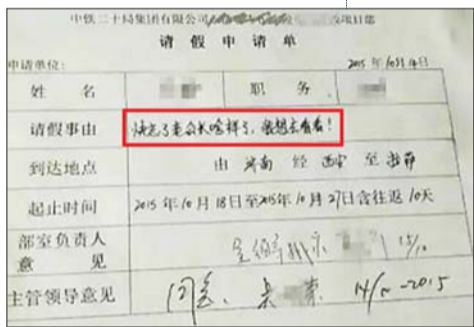 中铁二十局集团有限公司 改项目部
请假申请单
申请单位: 2015年10月14日
姓名 职务
请假事由 快忘了老公长啥样了,很想去看看!
到达地点 由 济南 经 西安 至
起止时间 2015年10月18日至2015年10月27日含往返10天
部室负责人
意见 15/10
主管领导意见 同意、 14/10-2015